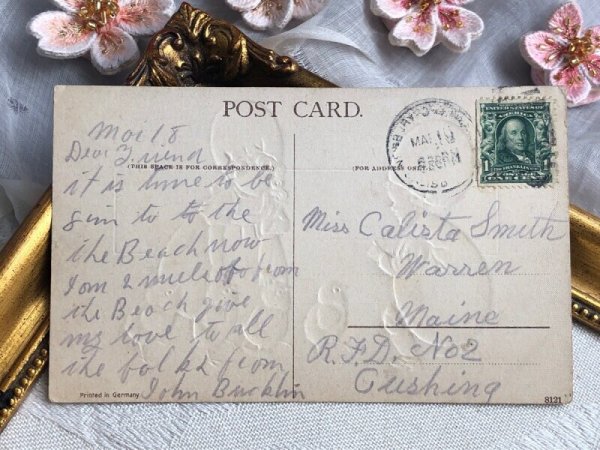 POST CARD.
(THIS SPACE IS FOR CORRESPONDENCE.)
(FOR ADDRESS ONLY.)
Mar 18
Dear Friend
it is time to be
gin to to the
the Beach now
I am 2 miles from
the Beach give
my love to all
the folks from
John Bucklin
Miss Calista Smith
Warren
Maine
R.F.D. No 2
Cushing
MAR 19
1
Printed in Germany
8121